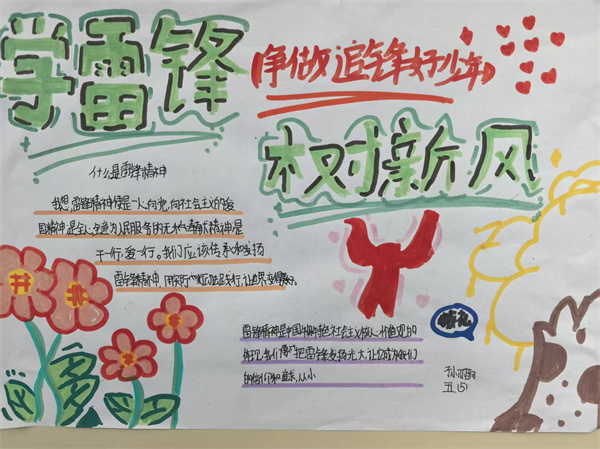 学雷锋
争做追锋好少年
树新风
什么是雷锋精神
我想,雷锋精神便是一人向党,向社会主义的爱
国精神,是全心全意为人民服务的无私奉献精神是
干一行,爱一行,我们应该传承和发扬
雷锋精神,用实际行动去践行,让世界变得更好。
雷锋精神是中国
社会主义核心价值观的
体现,我们要把雷锋发扬光大,让它成为我们
的信仰和追求,从小
敬礼
五(5)